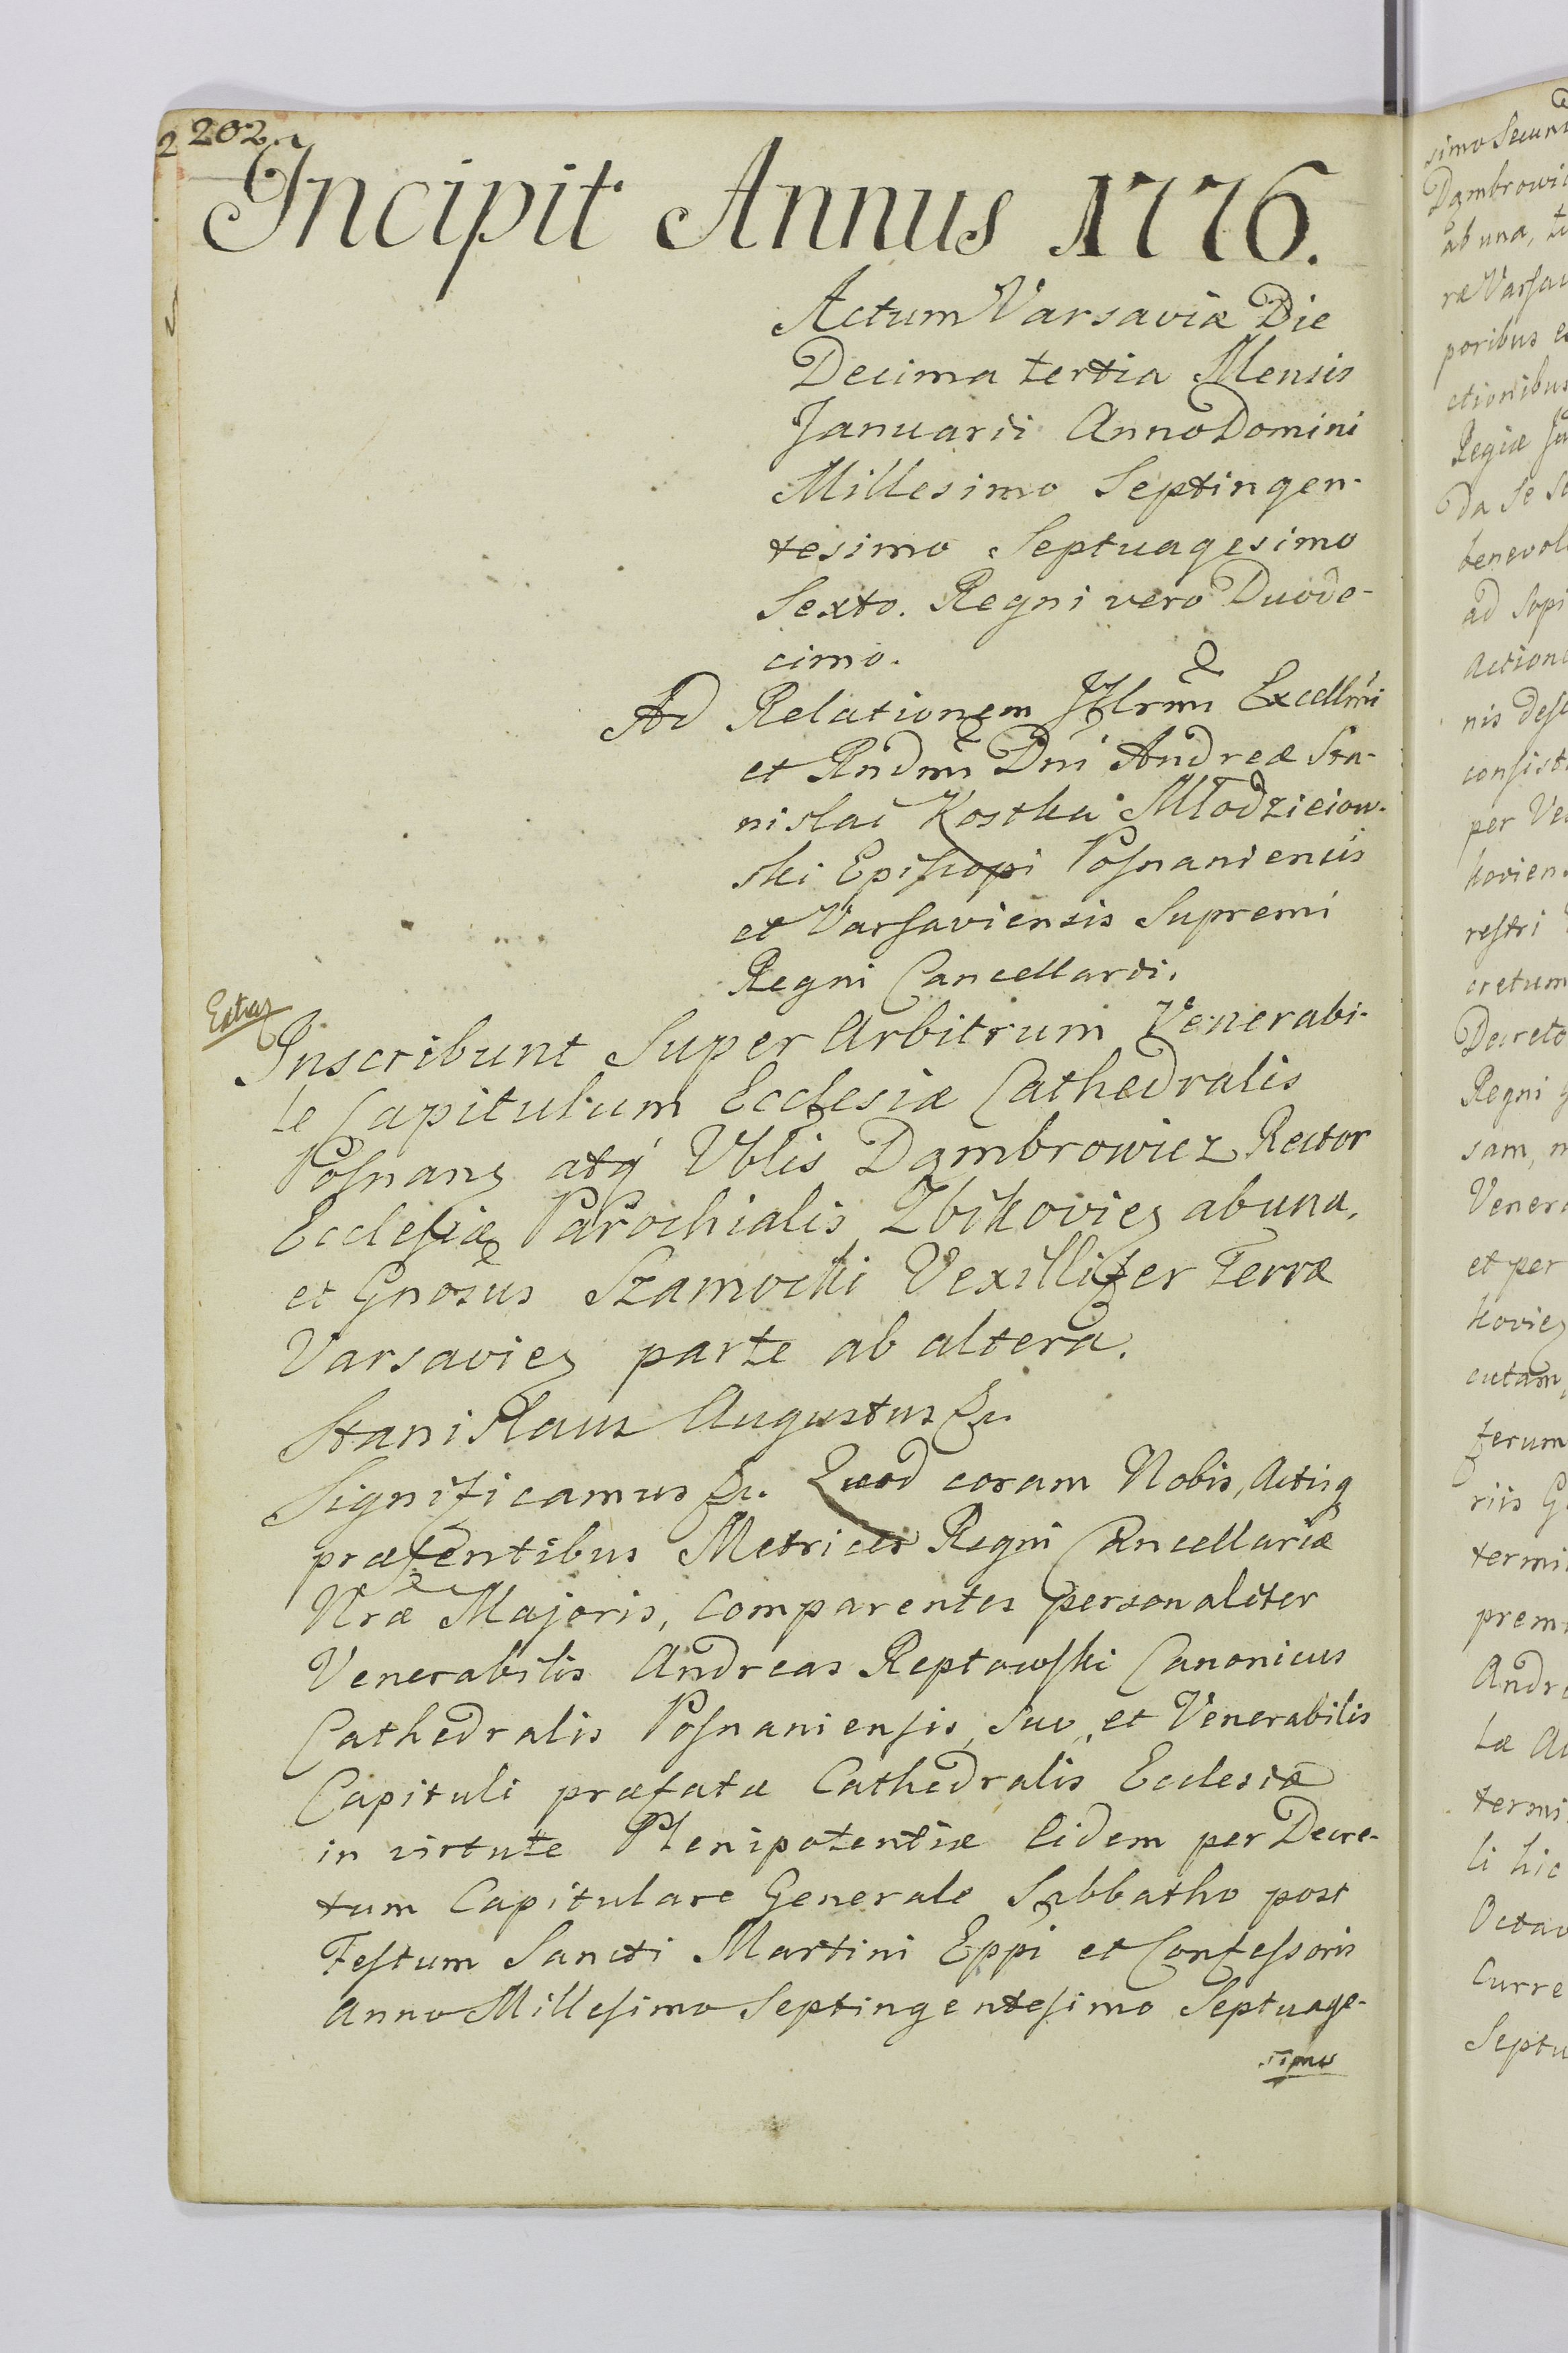 202.
Incipit Annus 1776.
Actum Varsaviæ Die
Decima tertia Mensis
Januarii Anno Domini
Millesimo Septingen-
tesimo Septuagesimo
Sexto. Regni vero Duode-
cimo.
Ad Relationem Jllrmi Excellmi
et Rndmi Dni Andreæ Sta-
nislai Kostka Młodzieiow-
ski Episkopi Posnaniensis
et Varsaviensis Supremi
Regni Cancellarii.
Inscribunt Super Arbitrum Venerabi-
le Capitulum Ecclesiæ Cathedralis
Posnanẽ atq́ Vblis Dąmbrowicz Rector
Ecclesiæ Parochialis Zbikovieẽ ab una,
et Gnosus Szamocki Vexillifer Terræ
Varsavieẽ parte ab altera.
Stanislaus Augustus &c.
Significamus &c. Quod coram Nobis, Actisq
præsentibus Metrices Regni Cancellariæ
Nræ Majoris, Comparentes personaliter
Venerabilis Andreas Reptowski Canonicus
Cathedralis Posnaniensis, suo, et Venerabilis
Capituli præfatæ Cathedralis Ecclesiæ
in virtute Plenipotentiæ Eidem per Decre-
tum Capitulare Generale Sabbatho post
Festum Sancti Martini Eppi et Confessoris
Anno Millesimo Septingentesimo Septuage-
simo
simo Secun
Dąmbrowic
ab una,
ræ Varsav
poribus
ctionibus
Regiæ
da se
benevol
ad Sopi
Actione
nis
consist
per Ve
kovien
restri
cretum
Decreto
Regni
sam,
Venera
et per
koviẽ
cutam
ferum
riis
termi
prem
Andre
læ
termi
li hic
Octav
Curre
Septu